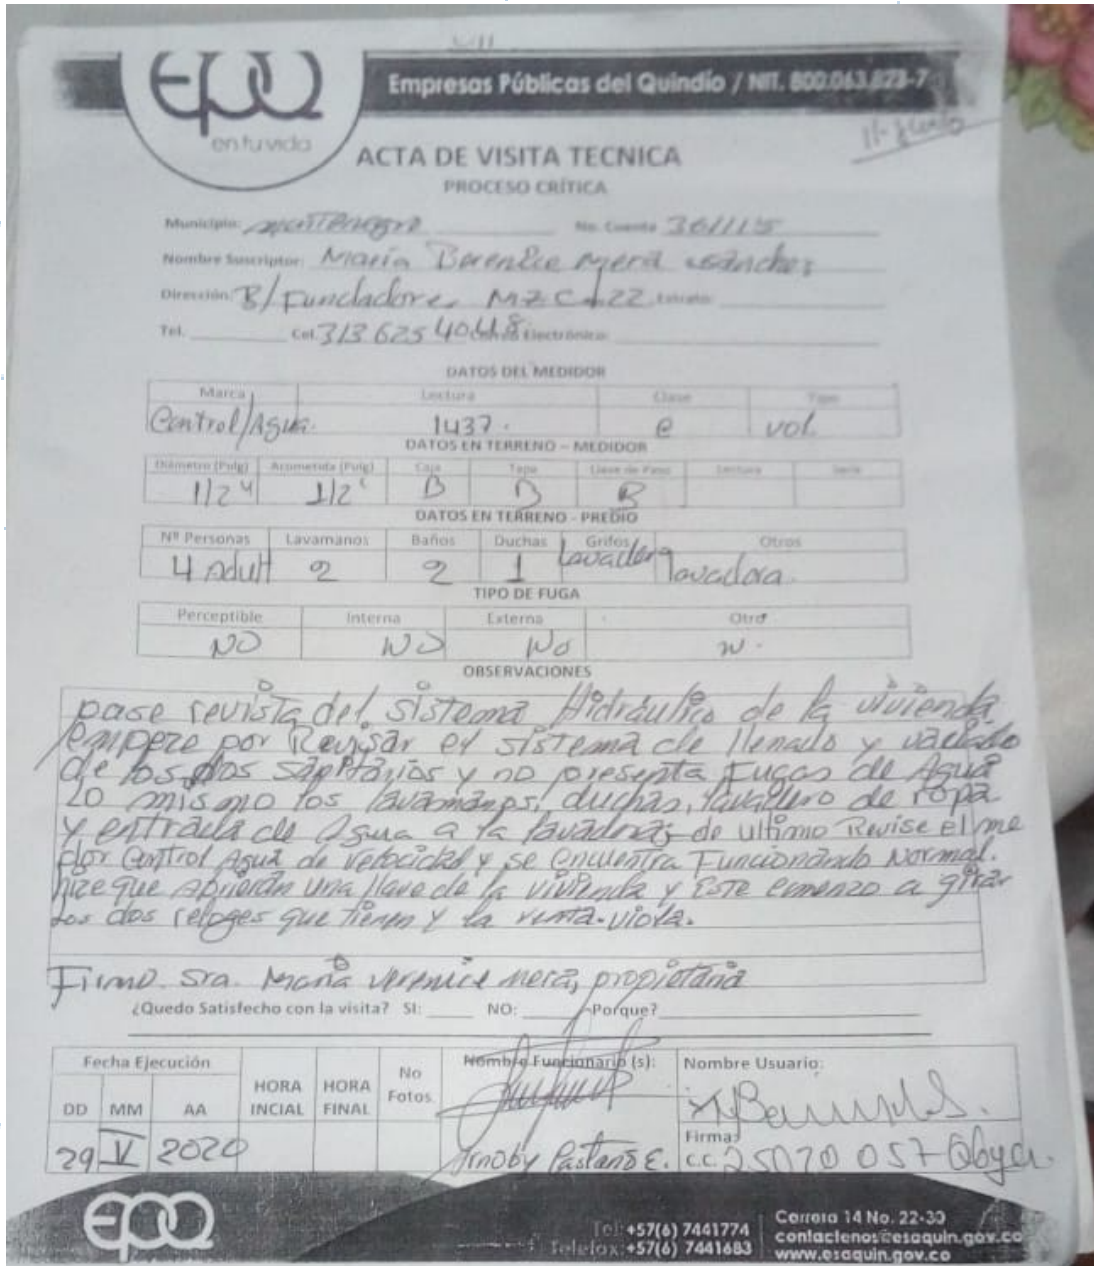 epq
en tu vida
Empresas Públicas del Quindío / NIT. 800.063.823-7
ACTA DE VISITA TECNICA
PROCESO CRÍTICA
Municipio: Montenegro No. Cuenta 361115
Nombre Suscriptor: María Berenice Mera Sánchez
Dirección: B/ Fundadores MZ C # 22 Estrato:
Tel. Cel. 313 625 4048 Correo Electrónico:
DATOS DEL MEDIDOR
Marca Lectura Clase Tipo
Control/Agua. 1437. C vol.
DATOS EN TERRENO - MEDIDOR
Diámetro (Pulg) Acometida (Pulg) Caja Tapa Llave de Paso Lectura Serie
1/2" 1/2" B B B
DATOS EN TERRENO - PREDIO
Nº Personas Lavamanos Baños Duchas Grifos Otros
4 Adult 2 2 1 lavadero lavadora.
TIPO DE FUGA
Perceptible Interna Externa Otro
NO NO NO N.
OBSERVACIONES
pase revista del sistema Hidráulico de la vivienda
empeze por Revisar el sistema de llenado y vaciado
de los dos sanitarios y no presenta Fugas de Agua
Lo mismo los lavamanos, duchas, lavadero de ropa
y entrada de Agua a la lavadora, de ultimo Revise el me
dor Control Agua de velocidad y se encuentra Funcionando Normal.
hize que abrieran una llave de la vivienda y Este comenzo a girar
los dos relojes que tienen y la
Firmo. Sra. María Verenice Mera, propietaria
¿Quedo Satisfecho con la visita? SI: NO: Porque?
Fecha Ejecución HORA INCIAL HORA FINAL No Fotos Nombre Funcionario (s): Nombre Usuario:
DD MM AA
29 V 2020 Arnoby E. Firma:
C.C 25070 057
epq
Tel: +57(6) 7441774
Telefax: +57(6) 7441683
Carrera 14 No. 22-30
contactenos@esaquin.gov.co
www.esaquin.gov.co